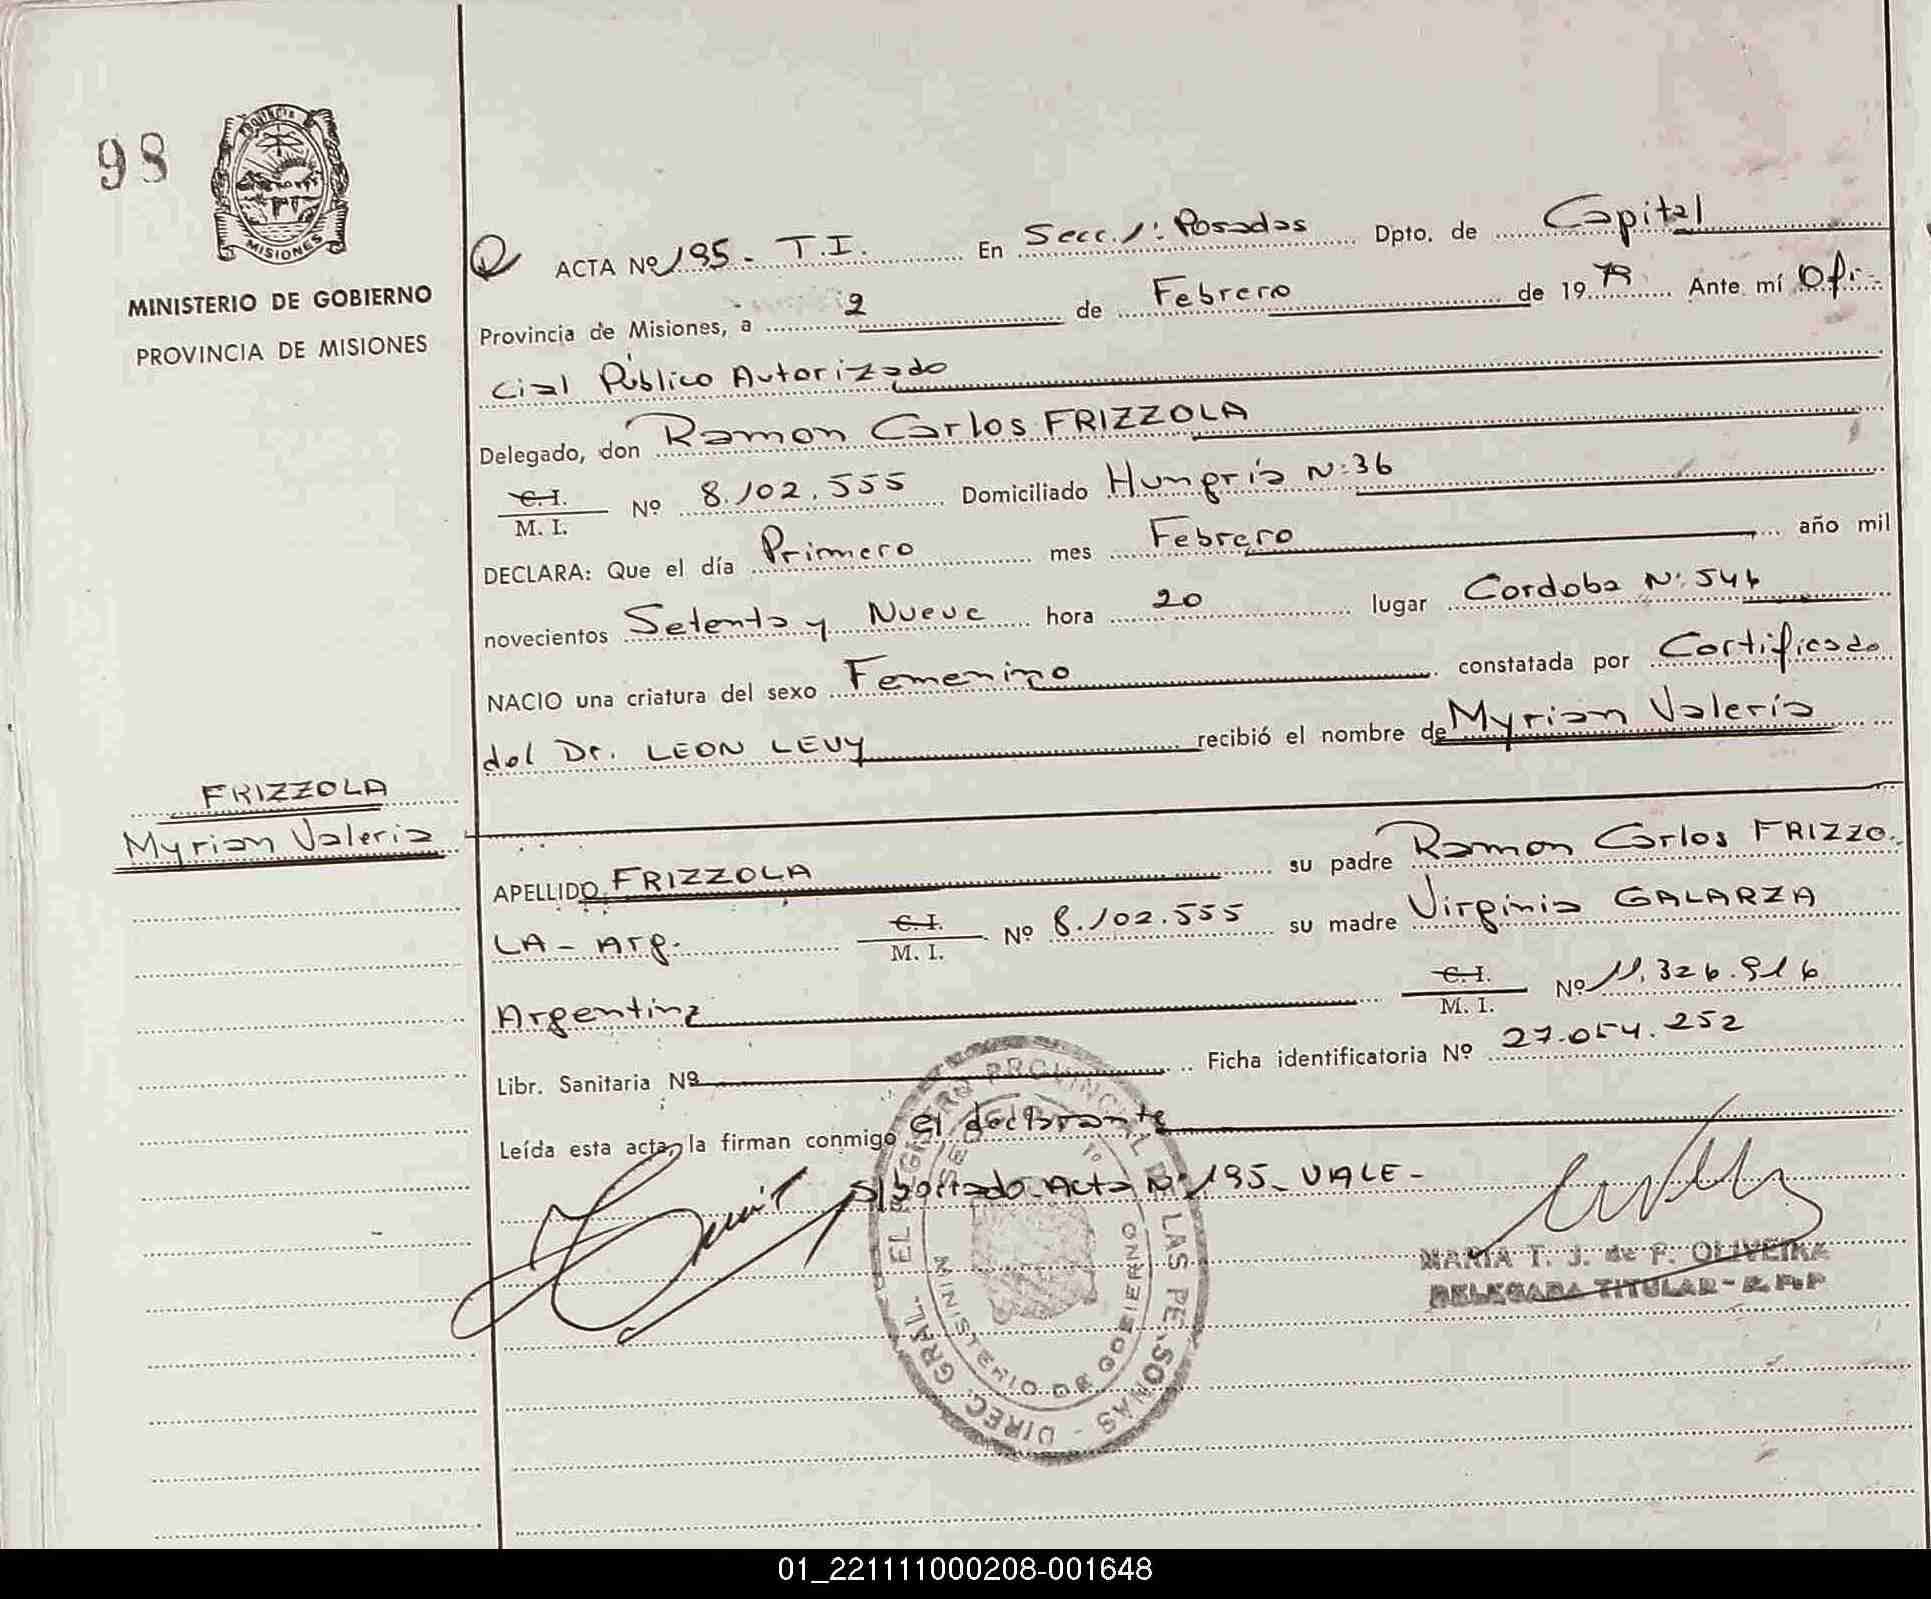 98
PROVINCIA
MISIONES
MINISTERIO DE GOBIERNO
PROVINCIA DE MISIONES
ACTA Nº 195 - T.I. En Secc. 1: Posadas Dpto. de Capital
Provincia de Misiones, a 2 de Febrero de 19 79 Ante mí Ofi-
cial Público Autorizado
Delegado, don Ramon Carlos FRIZZOLA
C.I. / M. I. Nº 8.102.555 Domiciliado Hungria N: 36
DECLARA: Que el día Primero mes Febrero año mil
novecientos Setenta y Nueve hora 20 lugar Cordoba N: 546
NACIO una criatura del sexo Femenino constatada por Certificado
del Dr. LEON LEVY recibió el nombre de Myrian Valeria
FRIZZOLA
Myrian Valeria
APELLIDO FRIZZOLA su padre Ramon Carlos FRIZZO-
LA - Arg. C.I. / M. I. Nº 8.102.555 su madre Virginia GALARZA
Argentina C.I. / M. I. Nº 11.326.916
Libr. Sanitaria Nº Ficha identificatoria Nº 27.054.252
Leída esta acta, la firman conmigo el declarante
s/borrado Acta N: 195 - VALE -
DIREC. GRAL. EL REGISTRO PROVINCIAL DE LAS PERSONAS
MINISTERIO DE GOBIERNO
MARIA T. J. de P. OLIVEIRA
DELEGADA TITULAR - R.P.P
01_221111000208-001648